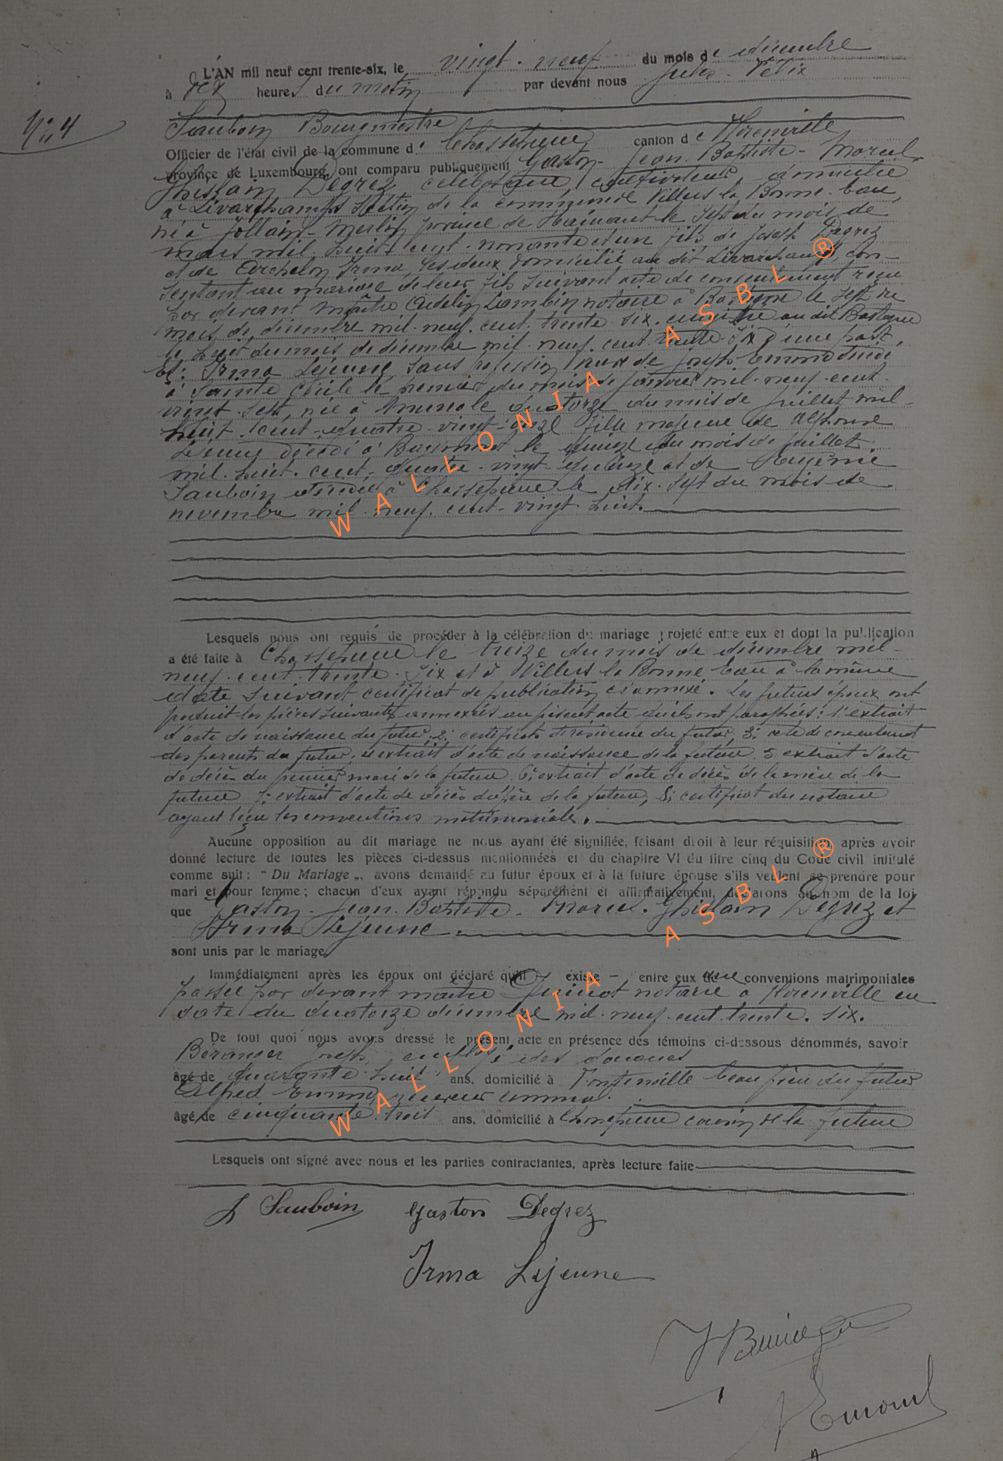 L'AN mil neuf cent trente-six, le vingt-neuf du mois de décembre
à dix heures du matin par devant nous Jules-Félix
N° 4
Sauboin Bourgmestre
Officier de l'état civil de la commune de Chassepierre canton de Florenville
province de Luxembourg, ont comparu publiquement Gaston-Jean-Baptiste-Marcel-
Ghislain Degrez, célibataire, cultivateur, domicilié
à Livarchamps section de la commune Villers la Bonne Eau,
né à Jollain-Merlin province de Hainaut le sept du mois de
mars mil huit cent nonante et un fils de Joseph Degrez
et de Irma, les deux domicilié au dit Livarchamps, con-
sentant au mariage de leur fils suivant acte de consentement reçu
par devant maître Lambin notaire à Bastogne le sept du
mois de décembre mil neuf cent trente-six, au dit Bastogne
le du mois de décembre mil neuf cent trente-six d'une part,
Et: Irma Lejeune, sans profession, décédé
à Sainte Cécile le premier du mois de mil neuf cent
vingt sept, née à le quatorze du mois de juillet mil
huit cent quatre-vingt-onze fille majeure de Alphonse
Lejeune décédé à le quinze du mois de juillet
mil huit cent quatre-vingt-quinze et de Eugénie
Sauboin décédée à Chassepierre le dix-sept du mois de
novembre mil neuf cent vingt huit.
Lesquels nous ont requis de procéder à la célébration du mariage projeté entre eux et dont la publication
a été faite à Chassepierre le treize du mois de décembre mil
neuf cent trente-six et à Villers la Bonne Eau à la même
date suivant certificat de publication ci-annexé. Les futurs époux ont
produit les pièces suivantes annexées au présent acte qu'ils ont paraphées: 1° extrait
d'acte de naissance du futur, 2° certificat du futur, 3° acte de consentement
des parents du futur, 4° extrait d'acte de naissance de la future 5° extrait d'acte
de décès du premier mari de la future 6° extrait d'acte de décès de la mère de la
future 7° extrait d'acte de décès du père de la future, 8° certificat du notaire
ayant reçu les conventions matrimoniales.
Aucune opposition au dit mariage ne nous ayant été signifiée, faisant droit à leur réquisition, après avoir
donné lecture de toutes les pièces ci-dessus mentionnées et du chapitre VI du titre cinq du Code civil intitulé
comme suit: "Du Mariage", avons demandé au futur époux et à la future épouse s'ils veulent se prendre pour
mari et pour femme; chacun d'eux ayant répondu séparément et affirmativement, déclarons au nom de la loi
que Gaston-Jean-Baptiste-Marcel-Ghislain Degrez et
Irma Lejeune.
sont unis par le mariage.
Immédiatement après les époux ont déclaré qu'il existe entre eux des conventions matrimoniales
passée par devant maître notaire à Florenville en
date du quatorze décembre mil neuf cent trente-six.
De tout quoi nous avons dressé le présent acte en présence des témoins ci-dessous dénommés, savoir
employé des douanes
âgé de quarante-huit ans, domicilié à beau frère du futur
Alfred receveur communal
âgé de cinquante-trois ans, domicilié à Chassepierre cousin de la future
Lesquels ont signé avec nous et les parties contractantes, après lecture faite
J Sauboin Gaston Degrez
Irma Lejeune
WALLONIA ASBL ®
WALLONIA ASBL ®